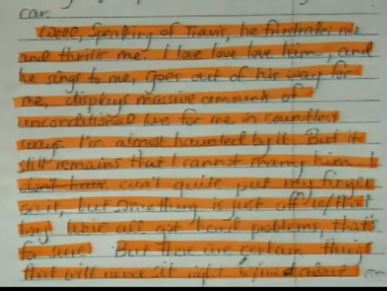 car.
Well, Speaking of Travis, he frustrates me
and thrills me. I love love love him, and
he sings to me, goes out of his way for
me, displays massive amounts of
unconditional love for me in countless
ways. I'm almost haunted by it. But it
still remains that I cannot marry him I
don't have can't quite put my finger
on it, but something is just off w/that
boy. We've all got head problems, that's
for sure. But there are certain things
that will never sit right